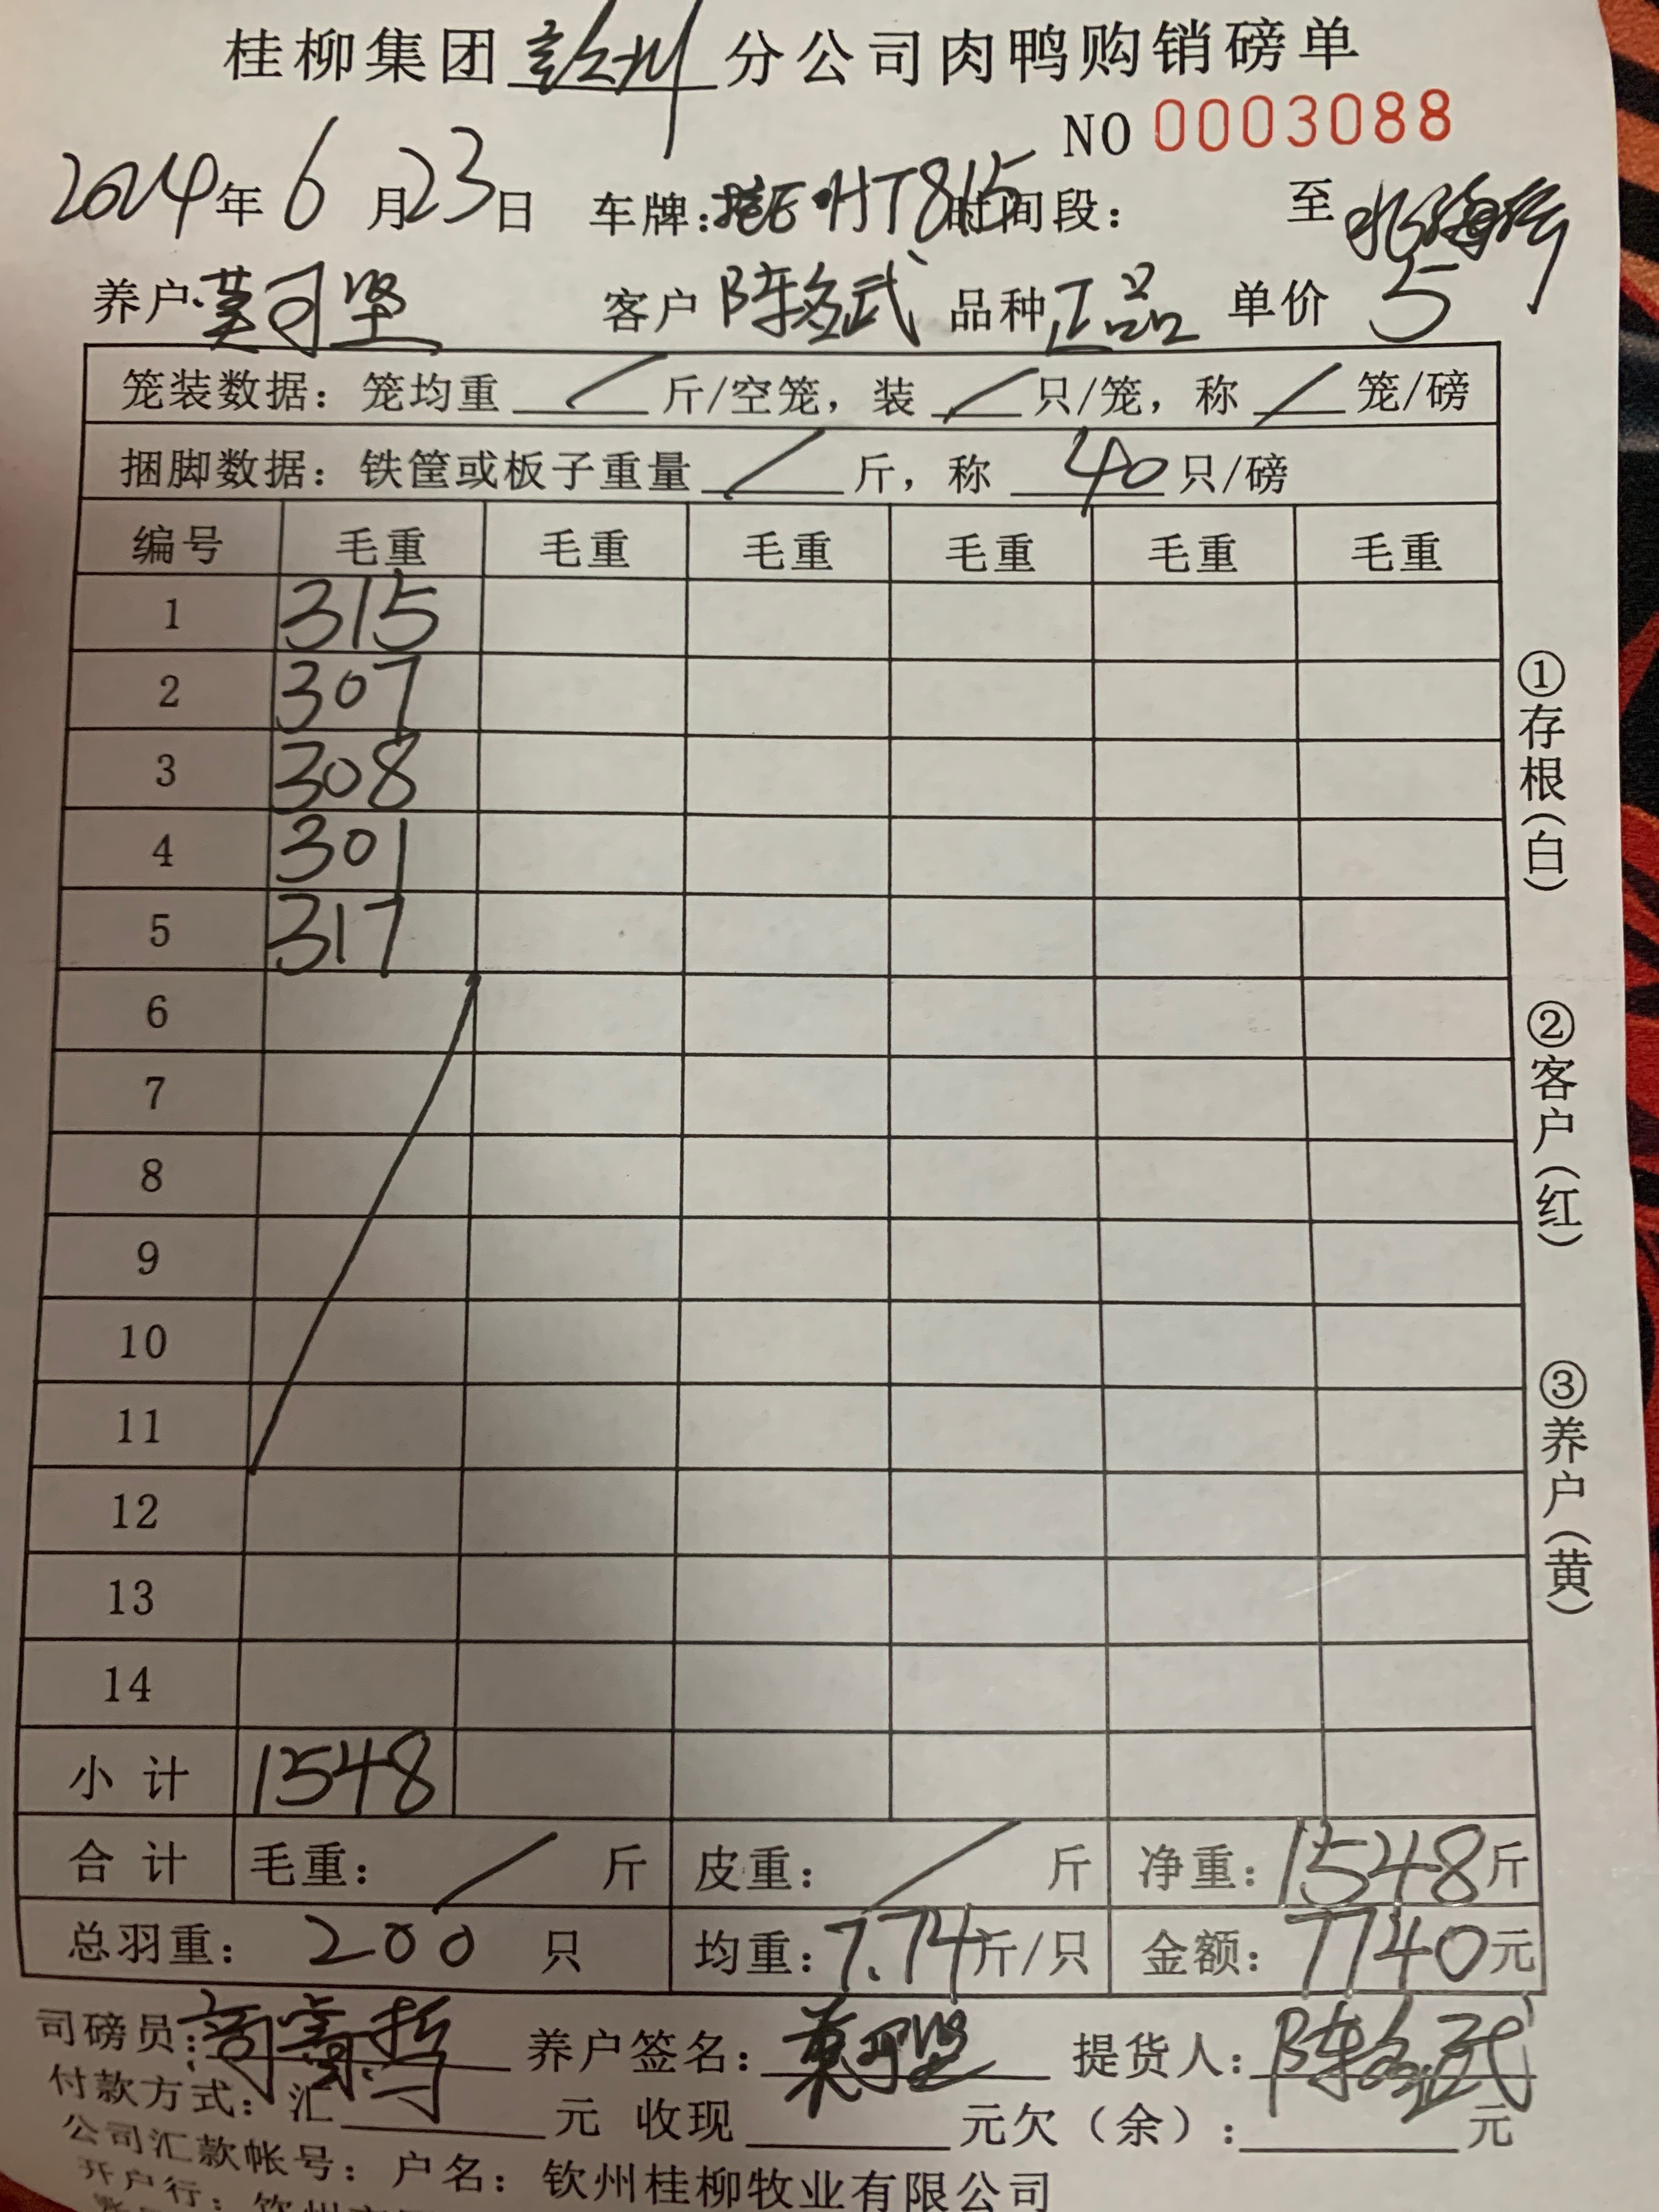 桂柳集团钦州分公司肉鸭购销磅单
NO 0003088
2024年6月23日 车牌: HT815 时间段: 至
养户: 莫可坚 客户 陈武 品种 正品 单价 5
笼装数据: 笼均重 / 斤/空笼, 装 / 只/笼, 称 / 笼/磅
捆脚数据: 铁筐或板子重量 / 斤, 称 40 只/磅
编号 毛重 毛重 毛重 毛重 毛重 毛重
1 315
2 307
3 308
4 301
5 317
6
7
8
9
10
11
12
13
14
小计 1548
合计 毛重: / 斤 皮重: / 斤 净重: 1548斤
总羽重: 200 只 均重: 7.74斤/只 金额: 7740元
司磅员: 养户签名: 莫可坚 提货人: 陈武
付款方式: 汇 元 收现 元欠(余): 元
公司汇款帐号: 户名: 钦州桂柳牧业有限公司
开户行: 钦州
①存根(白)
②客户(红)
③养户(黄)